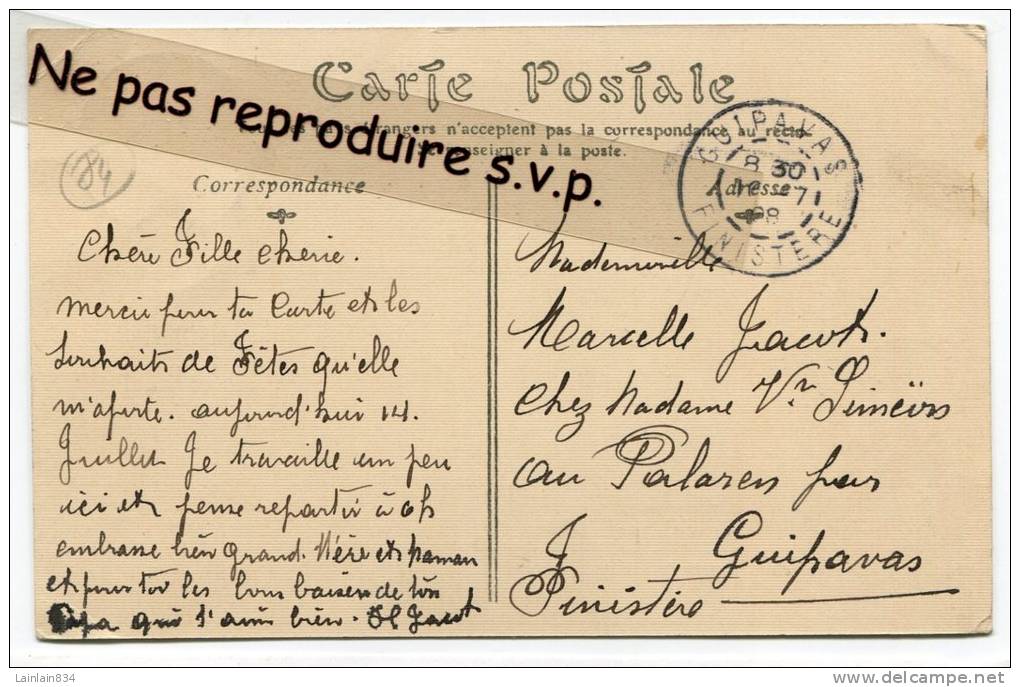 Carte Postale
Ne pas reproduire s.v.p.
n'acceptent pas la correspondance au recto
enseigner à la poste.
84
Correspondance
Adresse
GUIPAVAS
8 30
-7
08
FINISTERE
Chère Fille cherie.
merci pour ta Carte et les
souhaits de Fêtes qu'elle
m'aporte. aujourd'hui 14.
Juillet Je travaille un peu
ici et pense repartir à 6h
embrasse bien grand. Mère et Maman
et pour toi les bons baisers de ton
Papa qui t'aime bien. Jacot
Mademoiselle
Marcelle Jacot.
chez Madame Vve
au Palaren par
Guipavas
Finistère
Lainlain834
www.delcampe.net